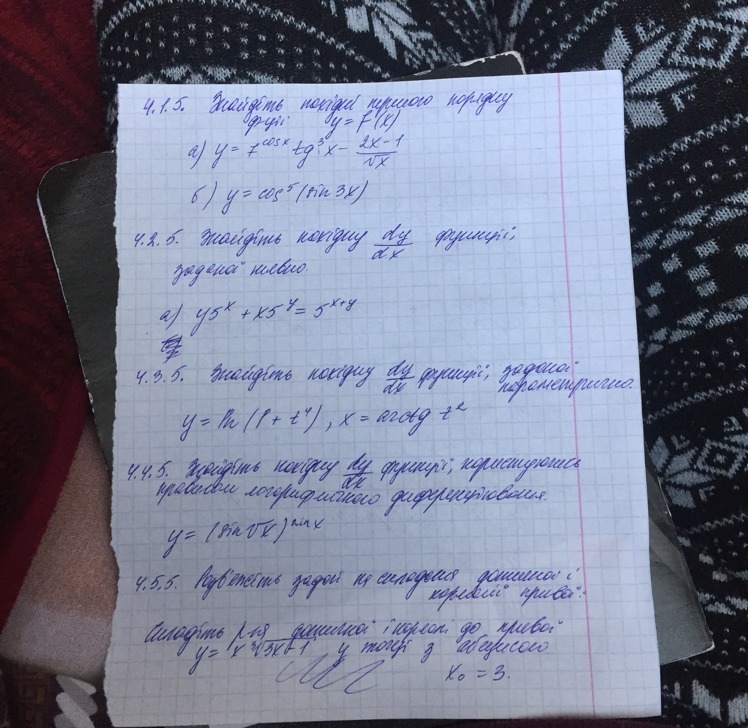 4.1.5. Знайдіть похідні першого порядку
ф-ції y = F(x)
а) y = 7^cosx tg³x − (2x−1)/√x
б) y = cos⁵(sin3x)
4.2.5. Знайдіть похідну dy/dx функції,
заданої неявно
а) y5^x + x5^y = 5^(x+y)
4.3.5. Знайдіть похідну dy/dx функції, заданої
параметрично.
y = ln(1+t⁴), x = arctg t²
4.4.5. Знайдіть похідну dy/dx функції, користуючись
правилом логарифмічного диференціювання.
y = (sin√x)
4.5.5. Розв'яжіть задачі на складання дотичної і
нормалі кривої.
Складіть р-ня дотичної і нормалі до кривої
y = x ∛(3x−1) у точці з абсцисою
x₀ = 3.